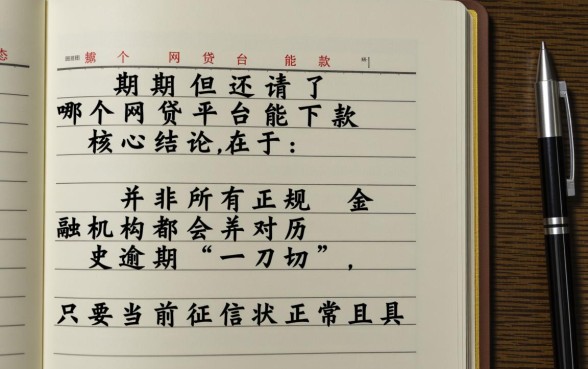 态
个 网 贷 台 能 款
期期但还请了
哪个网贷平台能下款
核心结论,在于:
并非所有正规 金
融机构都会弄对历
史逾期“一刀切”,
只要当前征信状正常且具